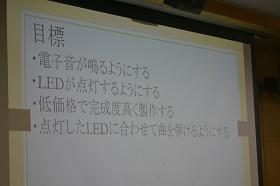 目標
・電子音が鳴るようにする
・LEDが点灯するようにする
・低価格で完成度高く製作する
・点灯したLEDに合わせて曲を弾けるようにする